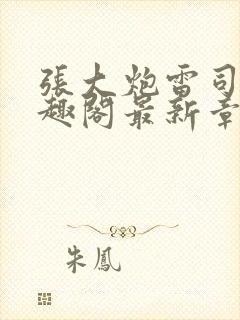 張大炮雷司
趣閣最新章
朱鳳